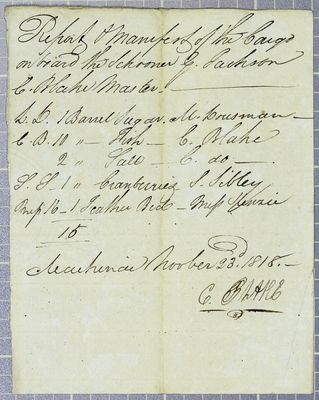 Report & Manifest of the Cargo
on board the Schooner G. Jackson
C. Blake Master
1 Barrel Sugar M. Dousman
C. B. 10 " Fish C. Blake
2 " Salt C. do
S. S. 1 " Cranberries S. Sibley
1 Feather Bed Miss
15
Mackinac Novber 23d. 1818.
C. BLAKE